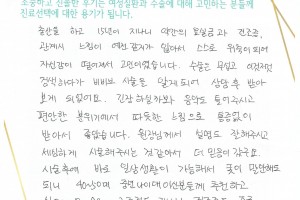 소중하고 진솔한 후기는 여성질환과 수술에 대해 고민하는 분들께
진료선택에 대한 용기가 됩니다.
출산을 하고 15년이 지나니 약간의 요실금과 건조증,
관계시 느낌이 예전같지가 않아서 스스로 위축이 되어
자신감이 떨어져서 고민이였습니다. 수술은 무섭고 이것저것
검색하다가 비비브 시술을 알게되어 상담 후 받아
보게 되었어요.. 긴장하실까봐 음악도 틀어주시고
편안한 분위기에서 따뜻한 느낌으로 통증없이
받아서 좋았습니다. 원장님께서 설명도 잘해주시고
세심하게 시술해주시는것 같아서 더 믿음이 갔구요.
시술후에 바로 일상생활이 가능해서 굿이
되니 40~50대 중년 나이대 여성분들께 추천하고